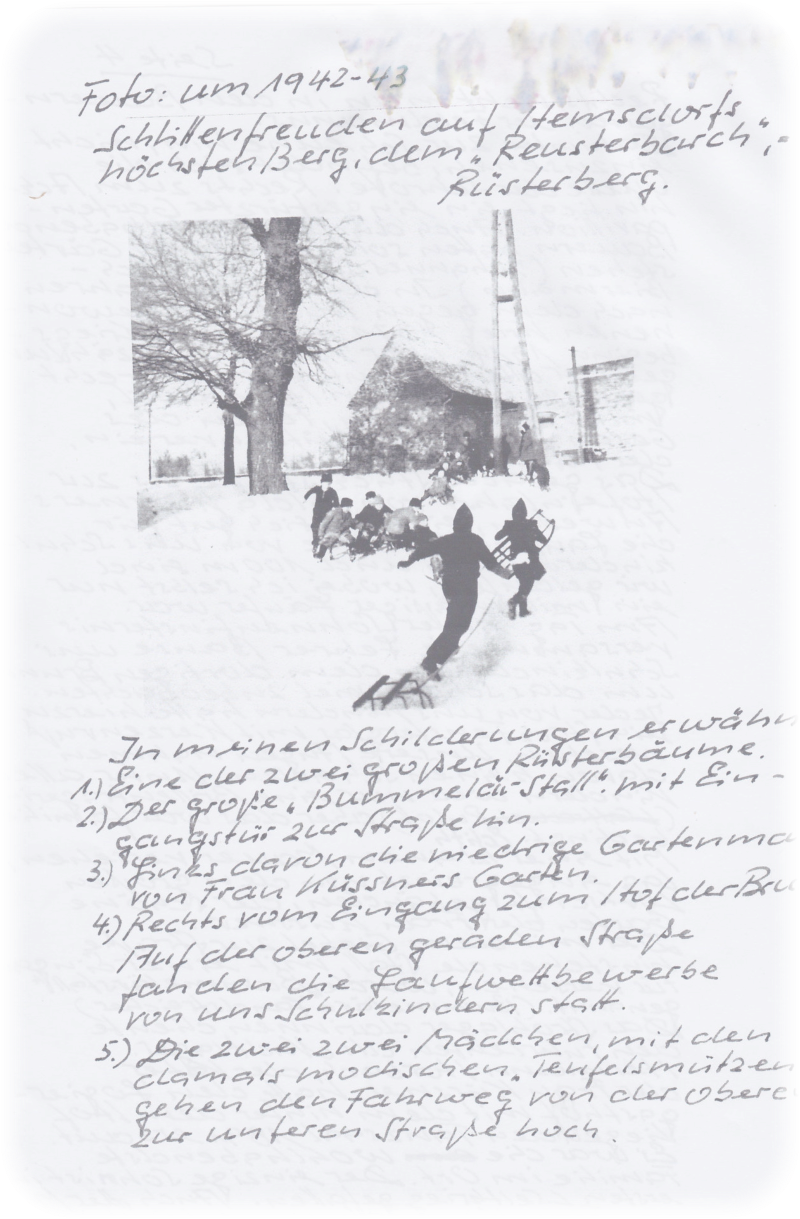 Foto: um 1942-43
Schlittenfreuden auf Hemsdorfs
höchsten Berg, dem „Reusterbarch",-
Rüsterberg.
In meinen Schilderungen erwähn
1.) Eine der zwei großen Rüsterbäume.
2.) Der große „Bummelär-Stall". mit Ein-
gangstür zur Straße hin.
3.) Links davon die niedrige Gartenma
von Frau Küssners Garten.
4.) Rechts vom Eingang zum Hof der Bru
Auf der oberen geraden Straße
fanden die Laufwettbewerbe
von uns Schulkindern statt.
5.) Die zwei zwei Mädchen, mit den
damals modischen „Teufelsmützen
gehen den Fahrweg von der obere
zur unteren Straße hoch.